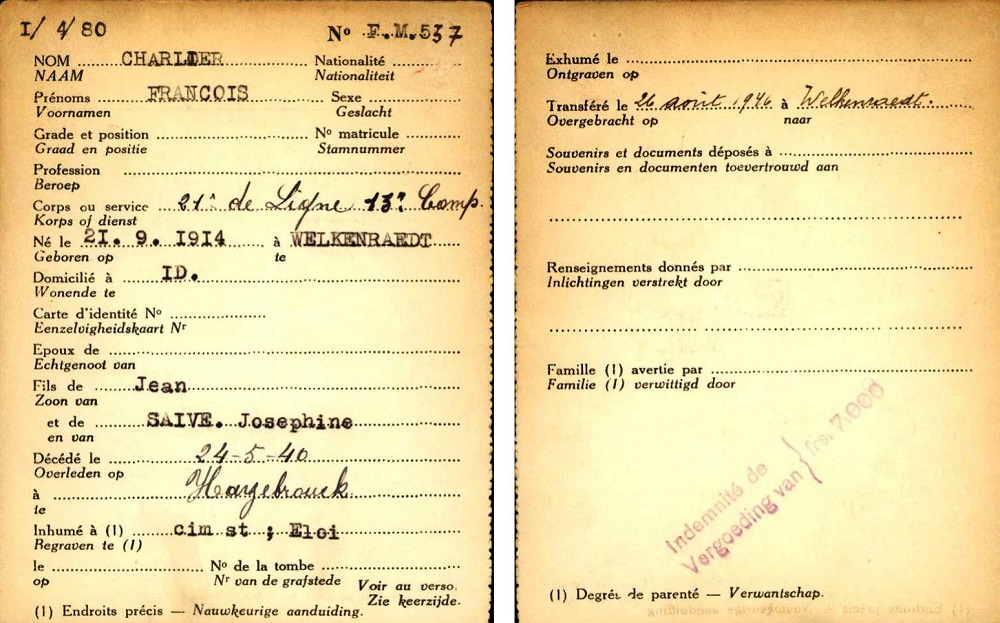 I/ 4/ 80
Nº F.M.537
NOM CHARLIER Nationalité
NAAM Nationaliteit
Prénoms FRANCOIS Sexe
Voornamen Geslacht
Grade et position Nº matricule
Graad en positie Stamnummer
Profession
Beroep
Corps ou service 21e de Ligne 13e Comp.
Korps of dienst
Né le 21. 9. 1914 à WELKENRAEDT
Geboren op te
Domicilié à ID.
Wonende te
Carte d'identité Nº
Eenzelvigheidskaart Nr
Epoux de
Echtgenoot van
Fils de Jean
Zoon van
et de SAIVE. Josephine
en van
Décédé le 24-5-40
Overleden op
à Hazebrouck
te
Inhumé à (1) cim st ; Eloi
Begraven te (1)
le Nº de la tombe
op Nr van de grafstede
Voir au verso.
Zie keerzijde.
(1) Endroits précis — Nauwkeurige aanduiding.
Exhumé le
Ontgraven op
Transféré le 26 août 1946 à Welkenraedt.
Overgebracht op naar
Souvenirs et documents déposés à
Souvenirs en documenten toevertrouwd aan
Renseignements donnés par
Inlichtingen verstrekt door
Famille (1) avertie par
Familie (1) verwittigd door
Indemnité de
Vergoeding van } frs. 7.000
(1) Degrés de parenté — Verwantschap.